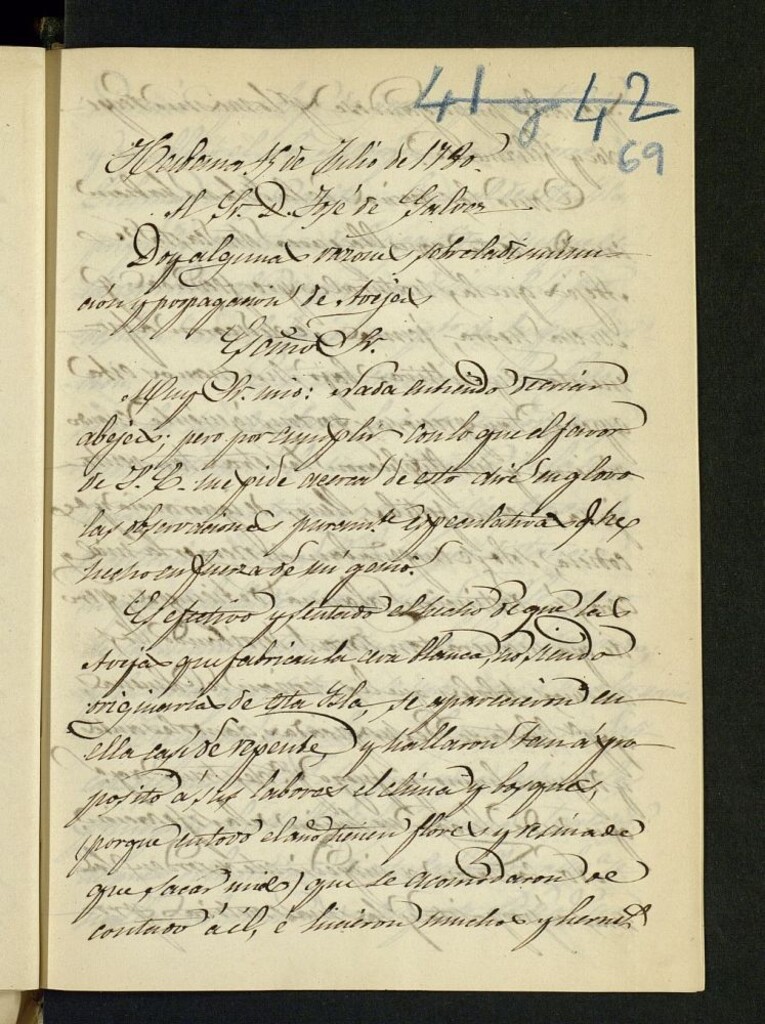 41 y 42
69
Habana 15 de Julio de 1780.
Al Sr. D. José de Galvez
Doy algunas razones sobre la disminu-
ción y propagacion de Avejas
Exmo Sr.
Muy Sr. mio: Nada entiendo de criar
abejas; pero por cumplir con lo que el favor
de V. E. me pide acerca de esto diré en globo
las observaciones puramte. especulativas q. he
hecho en fuerza de mi genio.
Es efectivo y sentado el hecho de que las
Avejas que fabrican la cera blanca, no siendo
originarias de esta Isla, se aparecieron en
ella casi de repente, y hallaron tan á pro-
posito á sus labores el clima y bosques,
(porque en todo el año tienen flores y resina de
que sacar miel) que se acomodaron de
contado á él, é hicieron muchos y